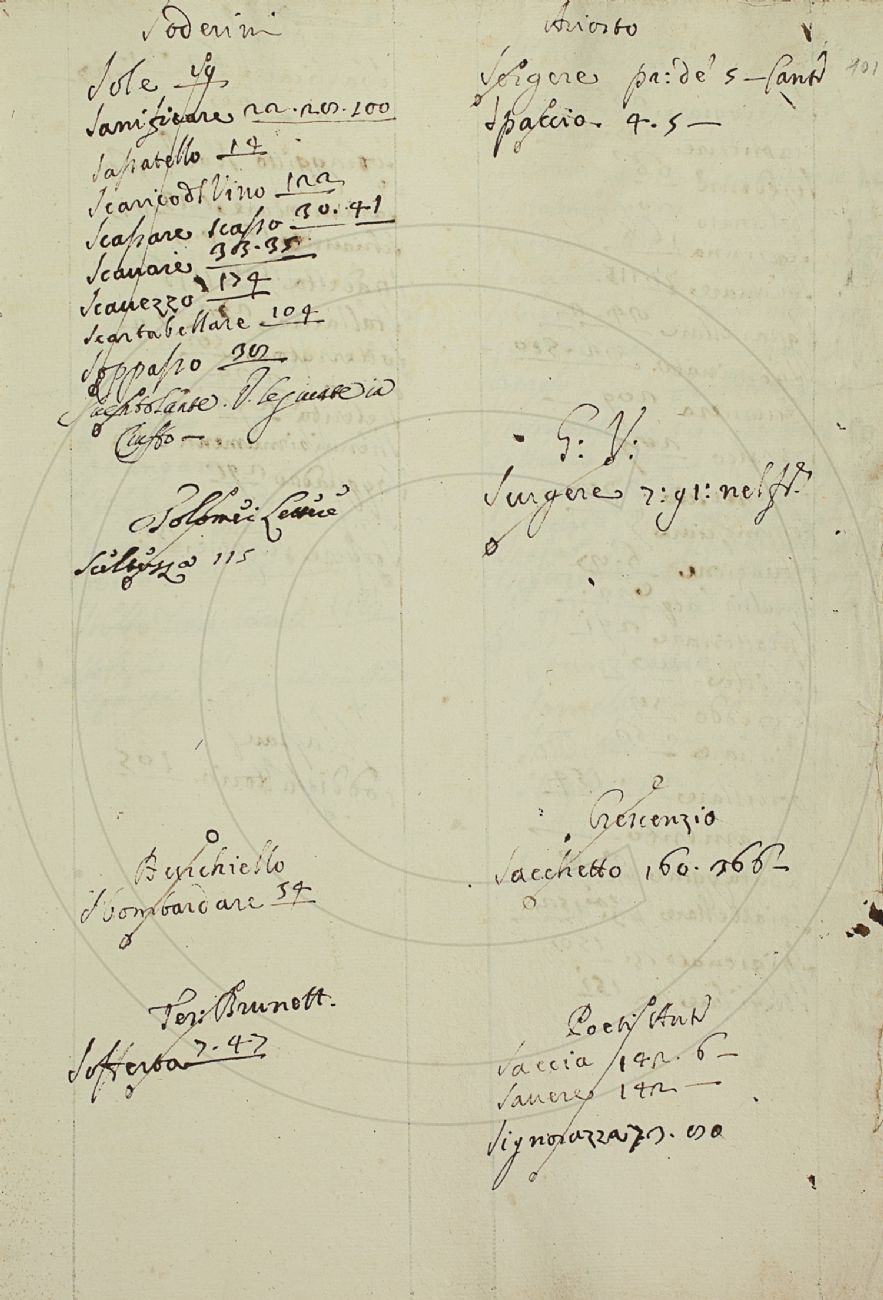 Soderini
Sole 59
Sanificare 22.28.100
Sassatello 14
Scarico di Vino 122
Scassare scasso 30.41
Scavare 33.35
Scavezzo 174
Scartabellare 104
Soppasso 38
Ciuffo —
Tolomei Lettere
115
Burchiello
Sbombardare 54
Tes: Brunett.
Sofferta 7.47
Ariosto
401
Sorgere pa: de' 5 — Canti
Spaccio. 4.5 —
G: V:
Surgere 7:91: nel fi.
Crescenzio
Sacchetto 160.366 —
Poeti Anti
Saccia 142.6 —
Savere 142 —
Signorazza